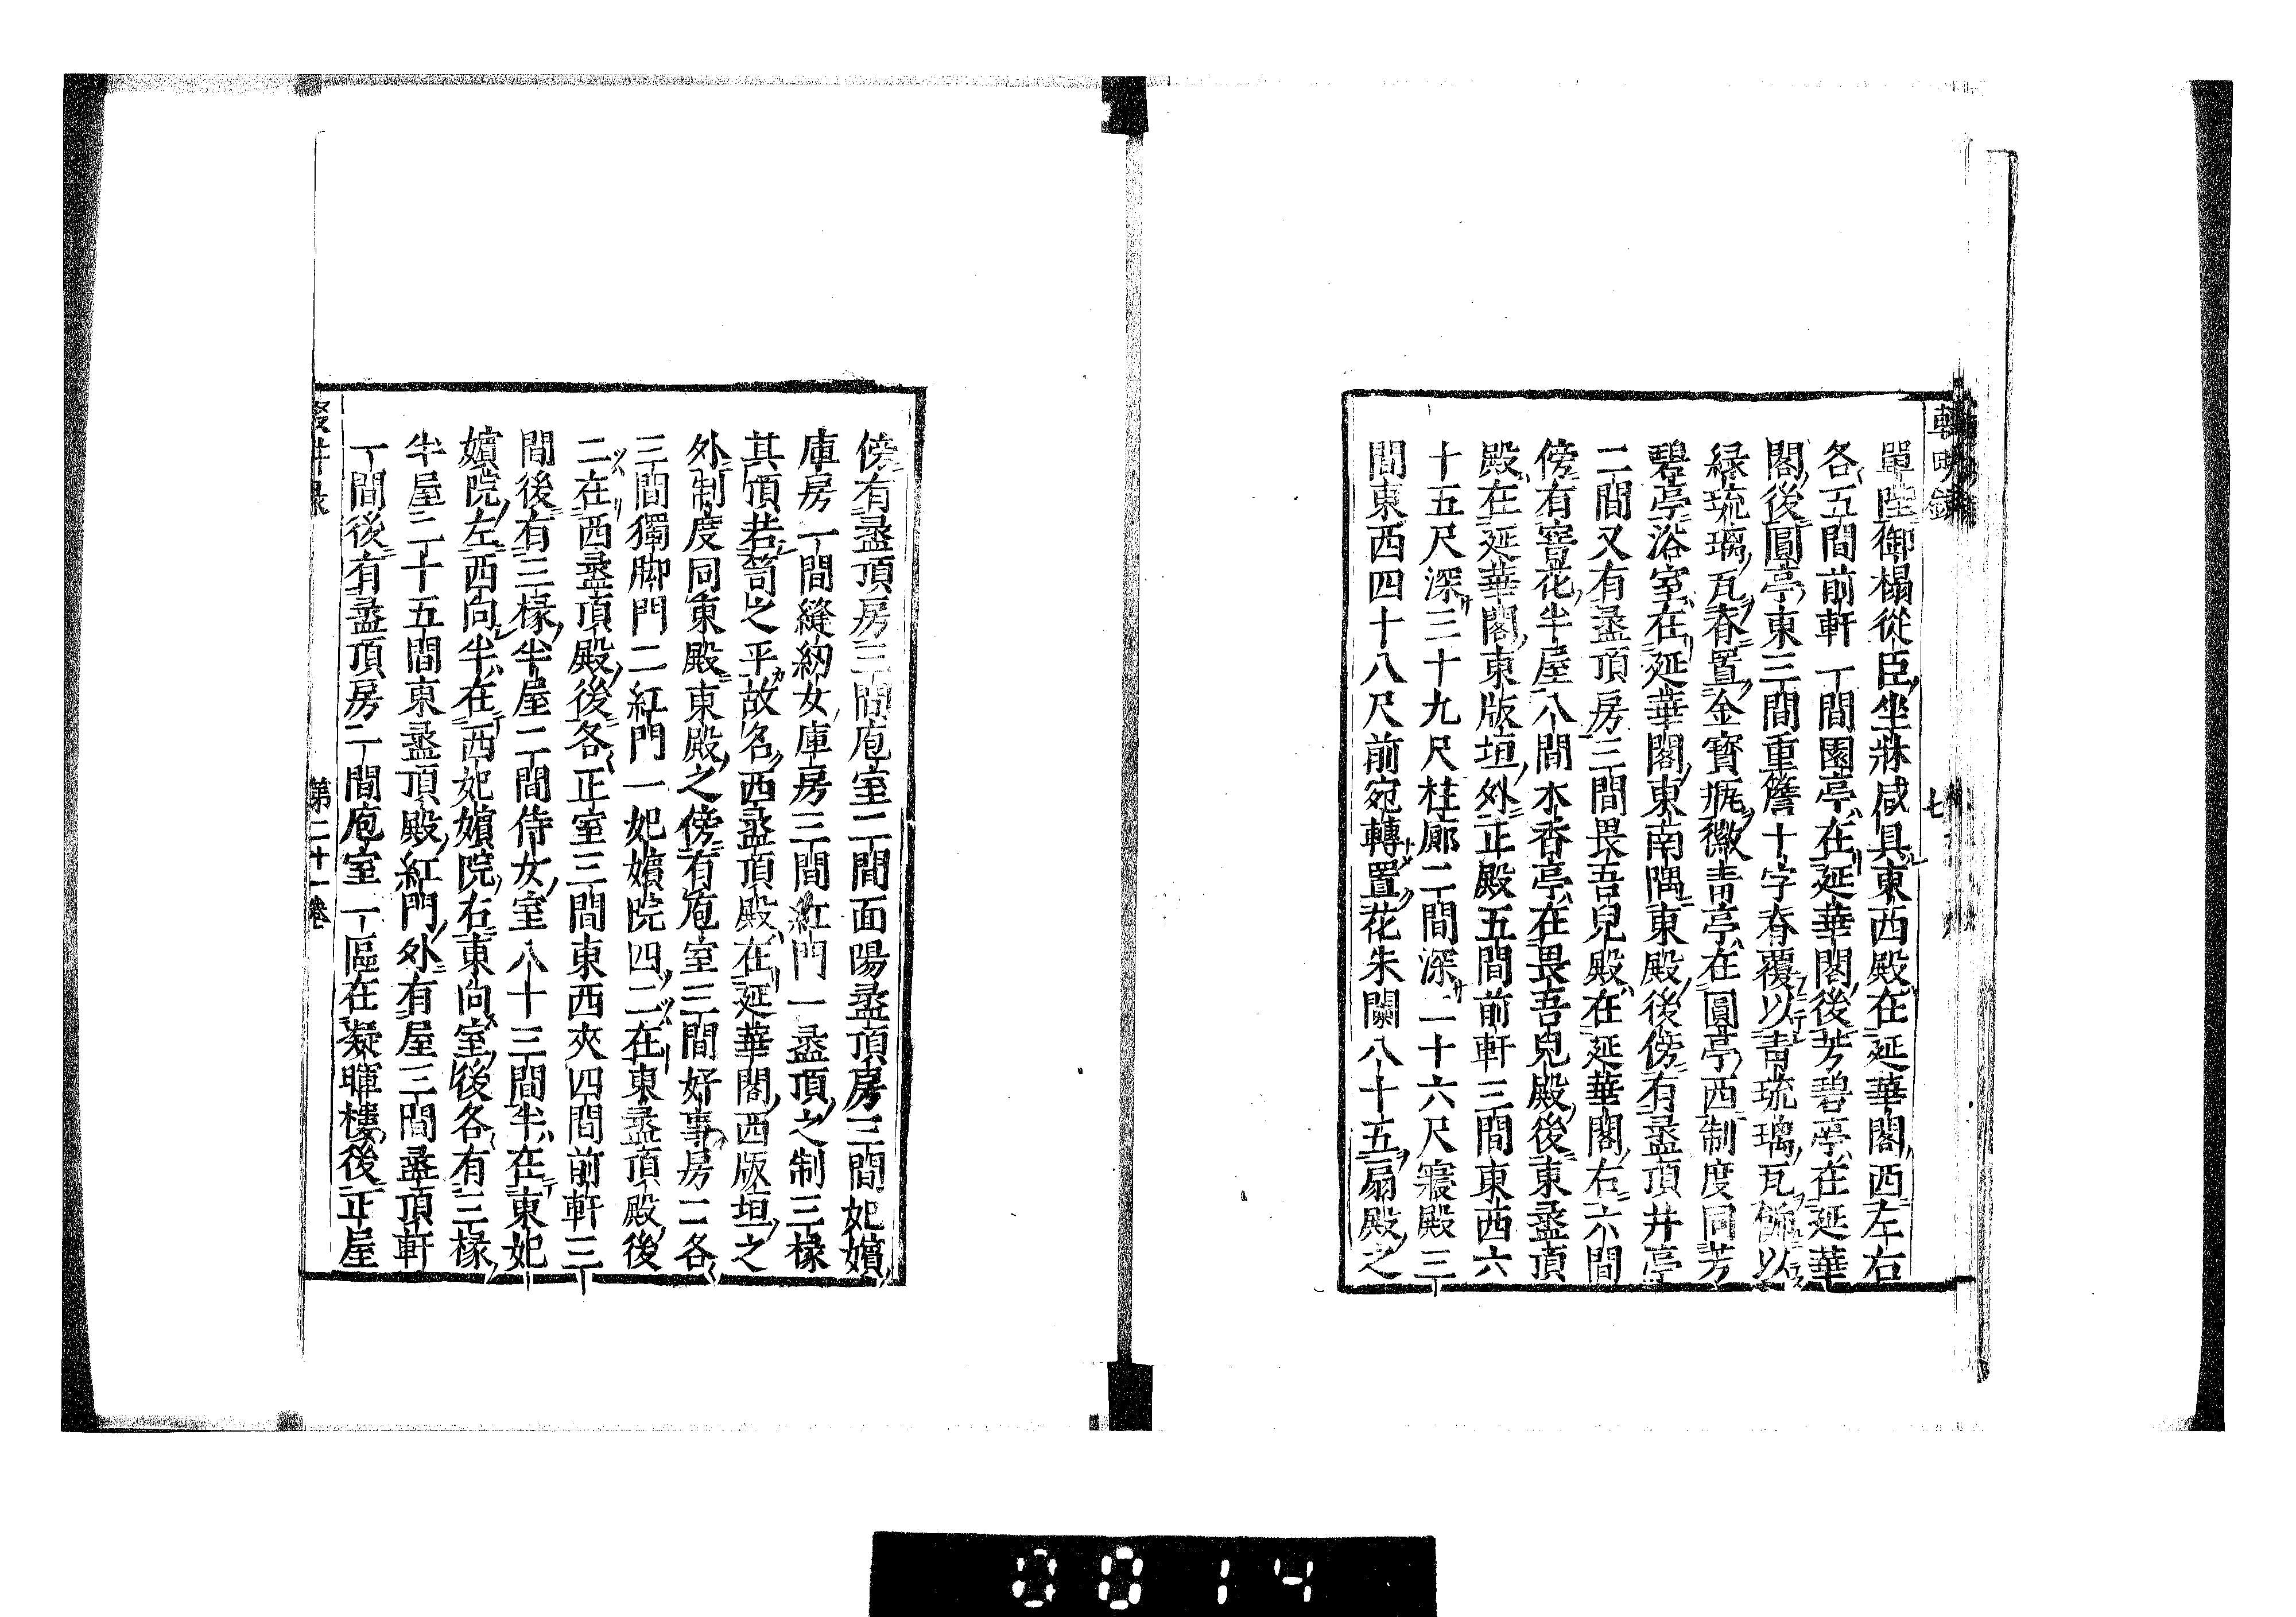 單陛御榻從臣坐牀咸具東西殿在延華閣西左右
各五間前軒一間園亭在延華閣後芳碧亭在延華
閣後圓亭東三間重簷十字脊覆以青琉璃瓦餙以
緑琉璃瓦脊置金寶瓶徽青亭在圓亭西制度同芳
碧亭浴室在延華閣東南隅東殿後傍有盝頂井亭
二間又有盝頂房三間畏吾兒殿在延華閣右六間
傍有窨花半屋八間木香亭在畏吾兒殿後東盝頂
殿在延華閣東版垣外正殿五間前軒三間東西六
十五尺深三十九尺柱廊二間深二十六尺寢殿三
間東西四十八尺前宛轉置花朱闌八十五扇殿之
七
傍有盝頂房三間庖室二間面陽盝頂房三間妃嬪
庫房一間縫紉女庫房三間紅門一盝頂之制三椽
其頂若笥之平故名西盝頂殿在延華閣西版垣之
外制度同東殿東殿之傍有庖室三間好事房二各
三間獨脚門二紅門一妃嬪院四二在東盝頂殿後
二在西盝頂殿後各正室三間東西夾四間前軒三
間後有三椽半屋二間侍女室八十三間半在東妃
嬪院左西向半在西妃嬪院右東向室後各有三椽
半屋二十五間東盝頂殿紅門外有屋三間盝頂軒
一間後有盝頂房二間庖室一區在凝暉樓後正屋
第二十一卷